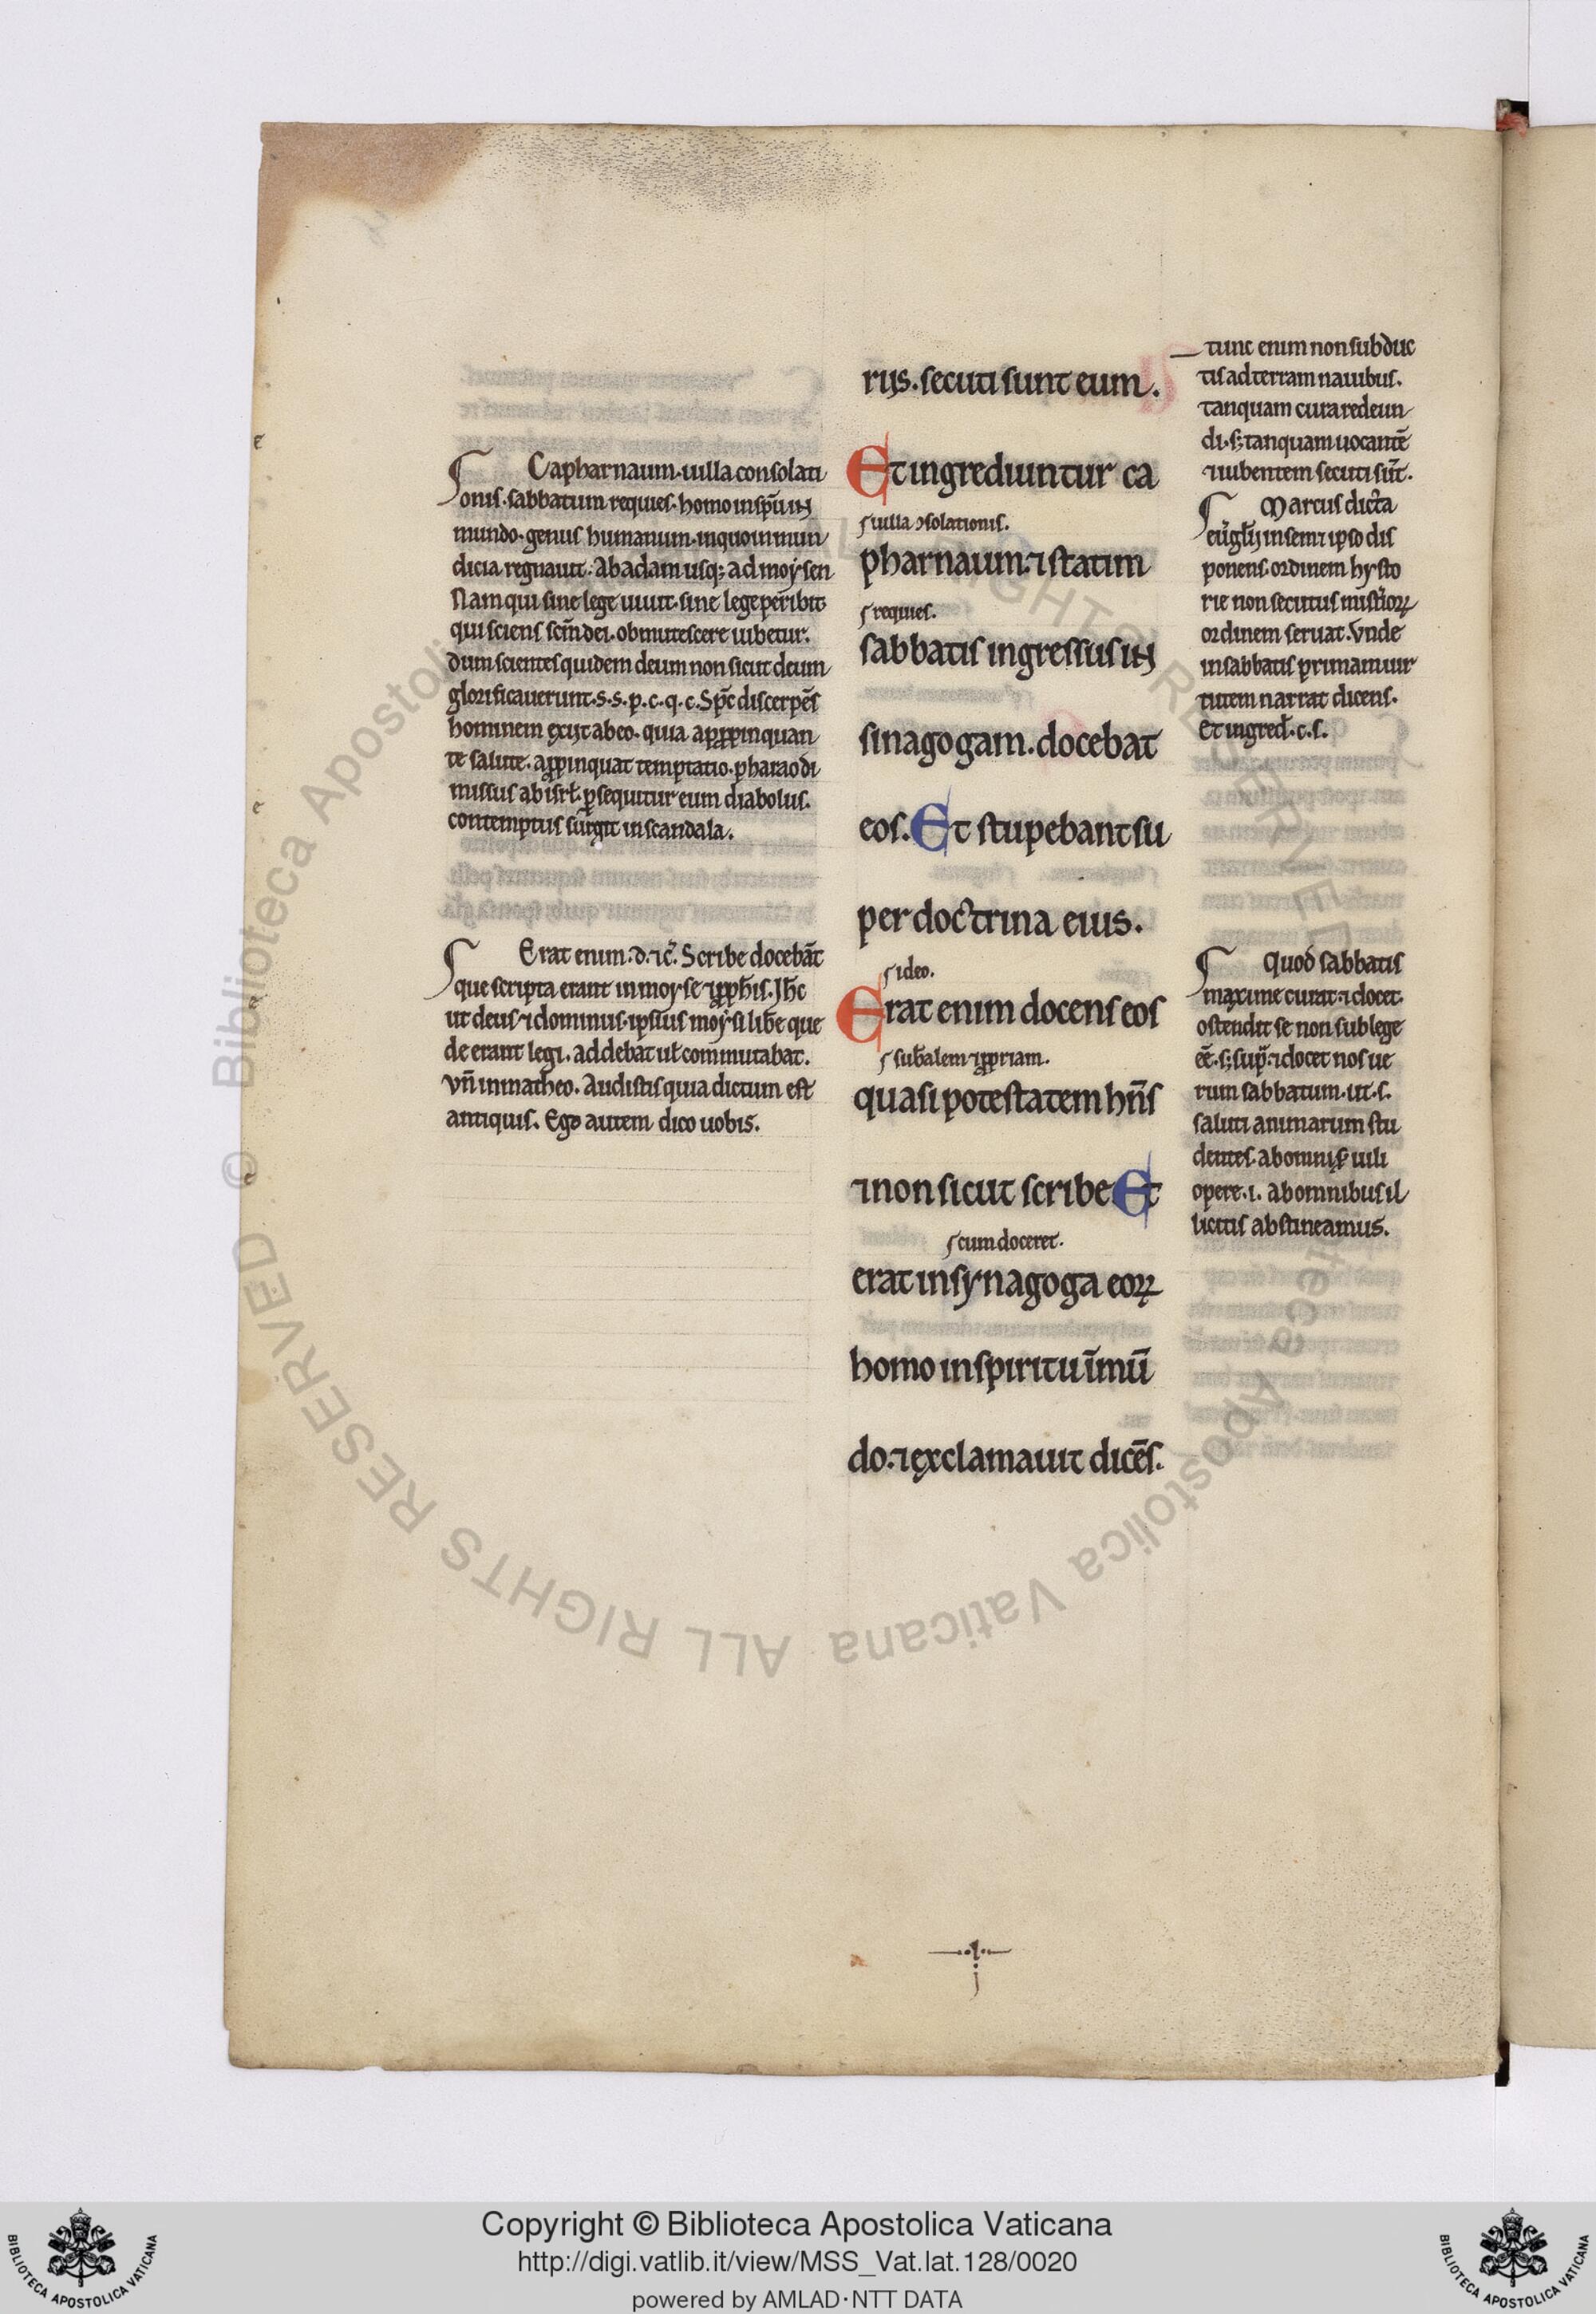 Capharnaum·uilla consolati
onis·sabbatum requies·homo in sp̄u in
mundo·genus humanum·in quo inmun
dicia regnauit· Ab adam usq; ad moysen
Nam qui sine lege uiuit· sine lege peribit
qui sciens scm̄ dei· obmutescere iubetur.
dum scientes quidem deum non sicut deum
glorificauerunt·s·s·p·c·q·c· Sp̄c discerpēs
hominem exijt ab eo· quia appropinquan
te salute· appropinquat temptatio· pharao di
missus ab isrł· ꝑsequitur eum diabolus·
contemptus surgit in scandala.
Erat enim·d·⁊ c̄· Scribe docebāt
que scripta erant in moyse ⁊ ꝓph̄is· Jh̄c
ut deus ⁊ dominus·ipsius moysi lib̄e que
de erant legi· addebat uł commutabat.
Vn̄ in matheo· Audistis quia dictum est
antiquis· Ego autem dico uobis.
rijs·secuti sunt eum.
Et ingrediuntur ca
s uilla ↄsolationis.
pharnaum·⁊ statim
s requies.
sabbatis ingressus in
sinagogam·docebat
eos· Et stupebant su
per doctrina eius.
s ideo.
Erat enim docens eos
s ꝓpriam.
quasi potestatem hn̄s
⁊ non sicut scribe Et
s cum doceret.
erat in synagoga eoꝝ
homo in spiritu īmū
do·⁊ exclamauit dicēs.
tunc enim non subduc
tis ad terram nauibus.
tanquam cura redeun
di·s; tanquam uocantē
⁊ iubentem secuti sūt.
Marcus dicta
euḡlij in semet ipso dis
ponens·ordinem hysto
rie non secutus mist̄ioꝝ
ordinem seruat· Vnde
in sabbatis primam uir
tutem narrat dicens.
Et ingred̄·c·s.
Quod sabbatis
maxime curat·⁊ docet·
ostendit se non sub lege
eē·s; sup̄·⁊ docet nos ue
rum sabbatum·ut·s.
saluti animarum stu
dentes·ab omni uili
opere·i· ab omnibus il
licitis abstineamus.
Copyright © Biblioteca Apostolica Vaticana
http://digi.vatlib.it/view/MSS_Vat.lat.128/0020
powered by AMLAD·NTT DATA
© Biblioteca Apostolica Vaticana ALL RIGHTS RESERVED
BIBLIOTECA APOSTOLICA VATICANA
BIBLIOTECA APOSTOLICA VATICANA